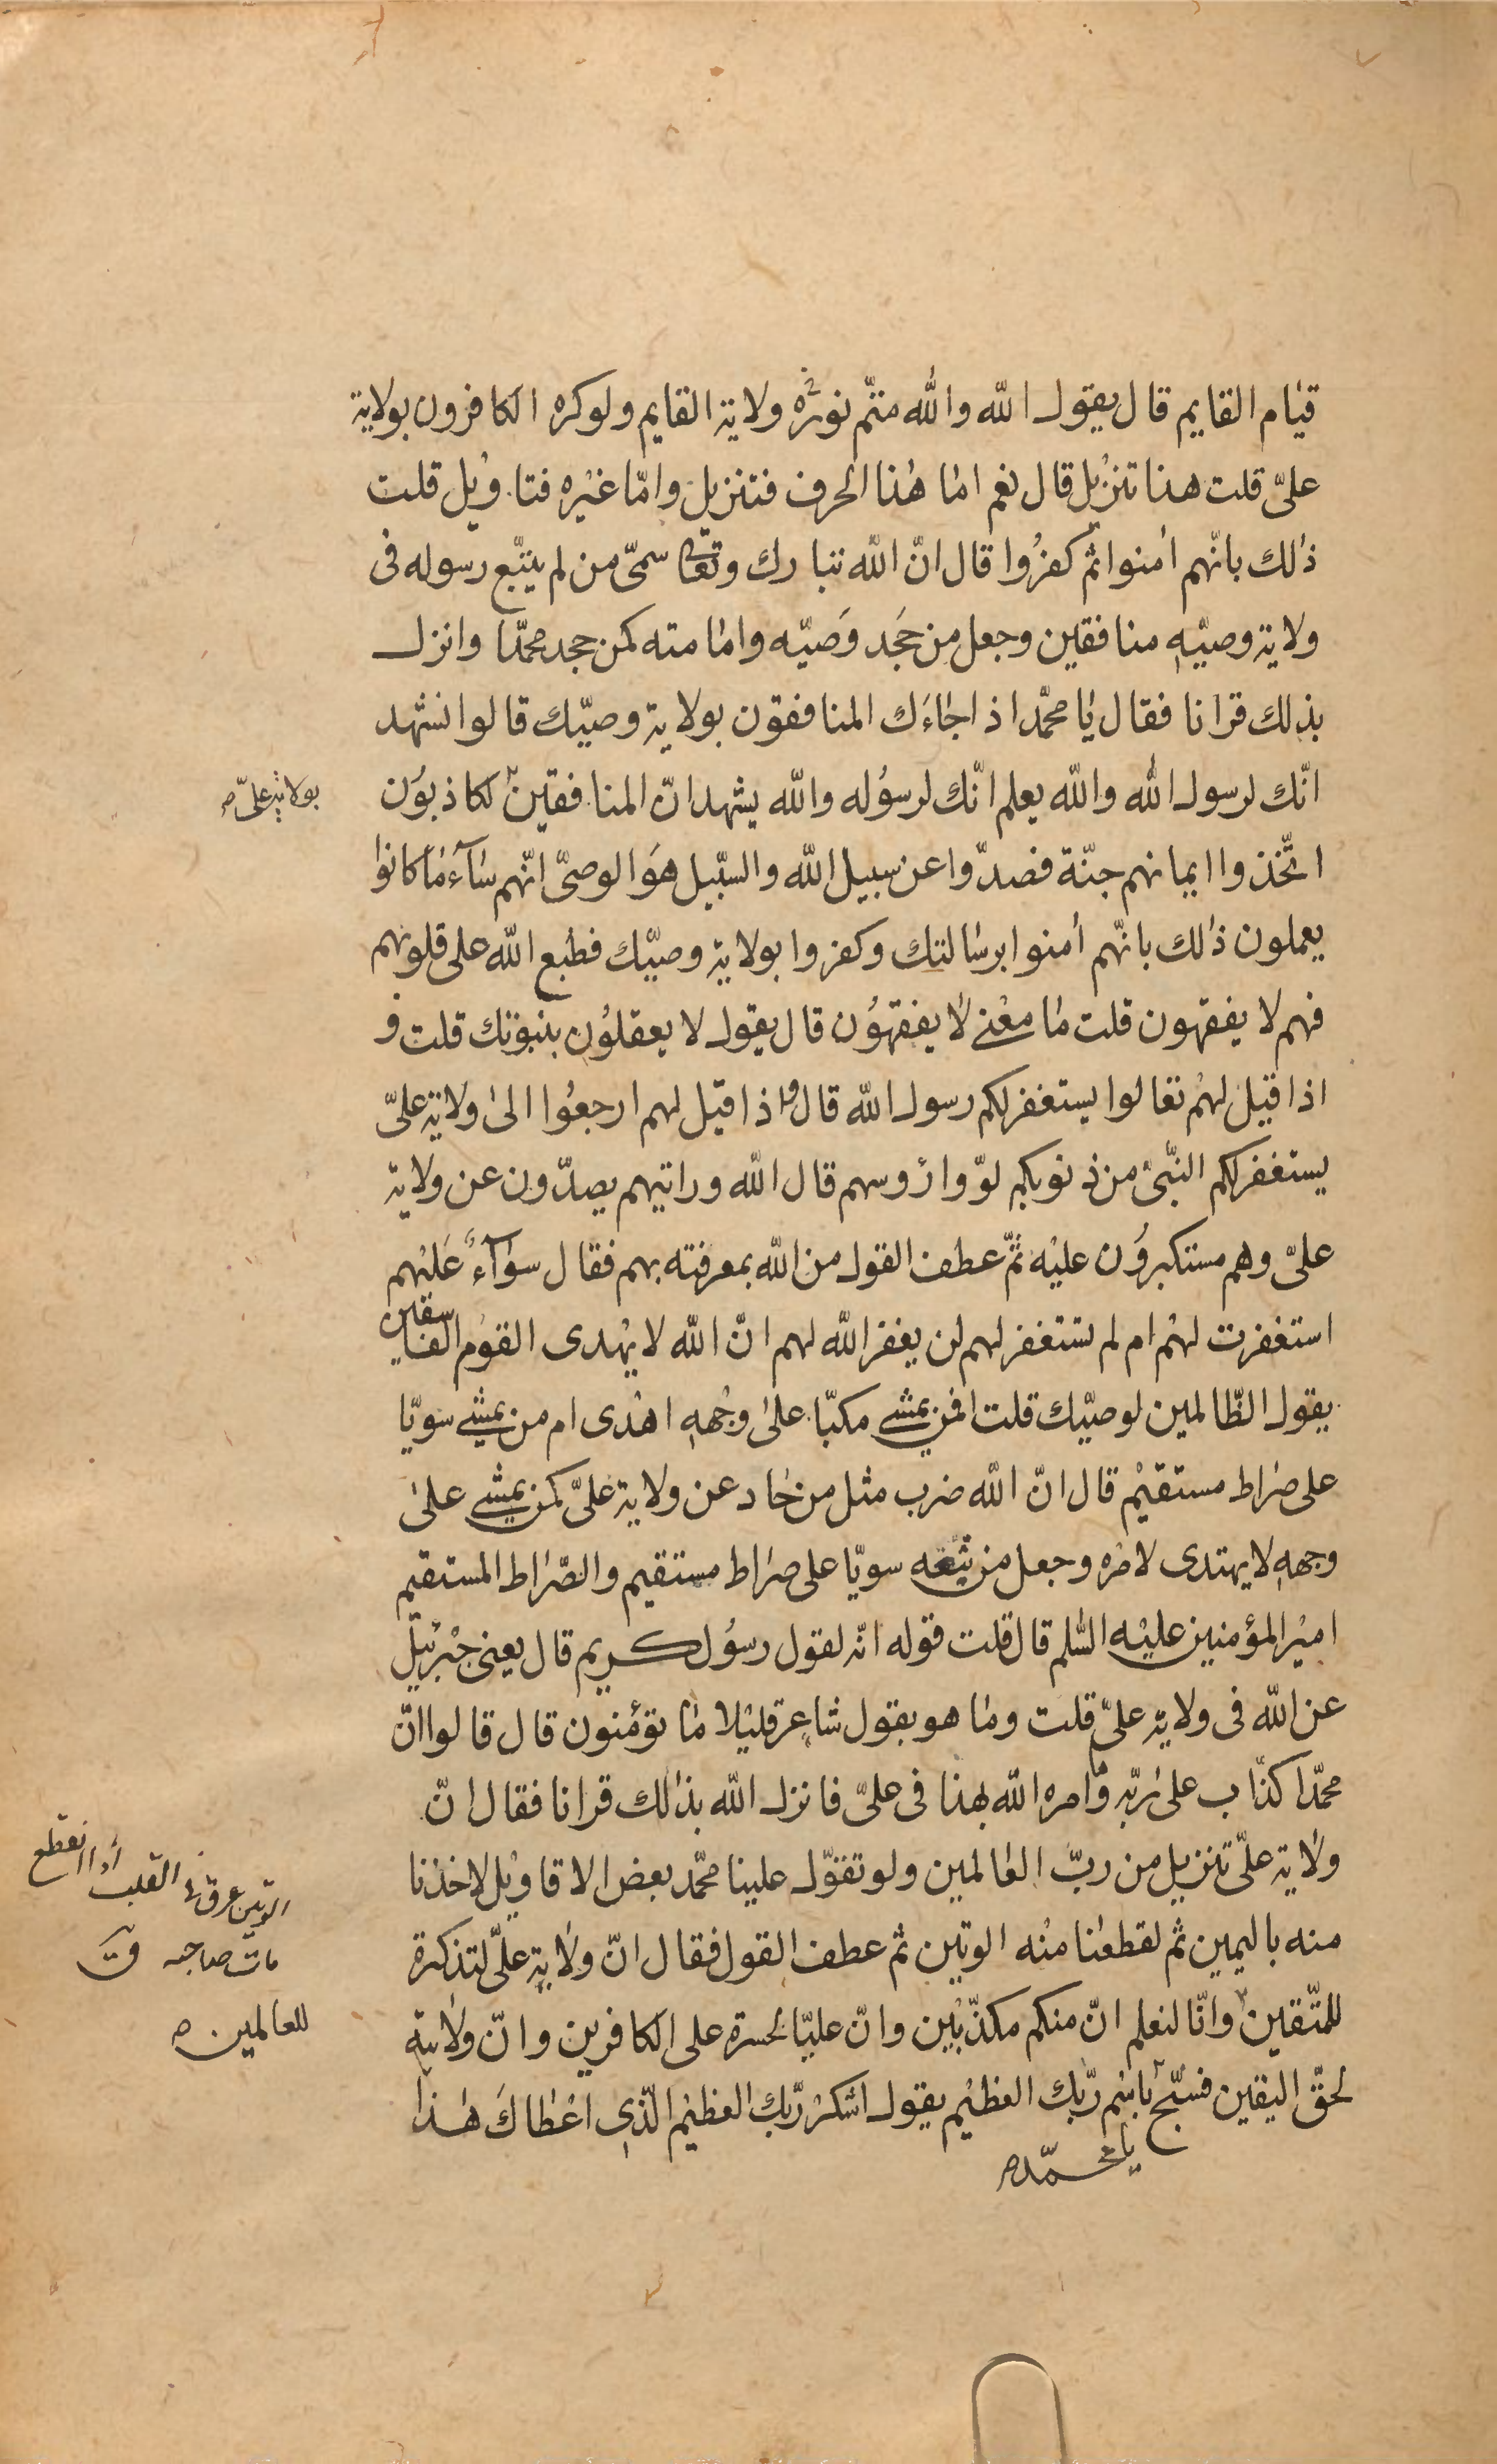 قيام القايم قال يقول الله والله متمّ نوره ولاية القايم ولو كره الكافرون بولاية
علىّ قلت هذا تنزيل قال نعم امّا هذا الحرف فتنزيل وامّا غيره فتاويل قلت
ذلك بانّهم امنوا ثم كفروا قال انّ الله تبارك وتعا سمىّ من لم يتبّع رسوله فى
ولاية وصيّه منافقين وجعل من جَحَد وَصيّه وامامته كمن جحد محمّدا وانزل
بذلك قرانا فقال يا محمّد اذا جاءَك المنافقون بولاية وصيّك قالوا نشهد
انّك لرسول الله والله يعلم انّك لرسُوله والله يشهد انّ المنافقين لكاذبوُن
بولاية علىّ
اتّخذوا ايمانهم جنّة فصدّوا عن سبيل الله والسّبيل هَوَ الوصىّ انّهم سآءَ ما كانوا
يعملون ذلك بانّهم امنوا برسالتك وكفروا بولاية وصيّك فطبع الله على قلوبهم
فهم لا يفقهون قلت ما معنى لا يفقهوُن قال يقول لا يعقلوُن بنبوتك قلت و
اذا قيل لهُم تعالوا يستغفر لكم رسول الله قال واذا قيل لهم ارجعُوا الى ولاية علىّ
يستغفر لكم النّبىّ من ذنوبكم لوّوا رُوسهم قال الله ورايتهم يصدّون عن ولاية
علىّ وهم مستكبروُن عليْه ثمّ عطف القول من الله بمعرفته بهم فقال سوآءٌ عَليْهم
استغفرت لهُم ام لم تستغفر لهم لن يغفر الله لهم انّ الله لا يهْدى القوْم الفاسقين
يقول الظّالمين لوصيّك قلت افمن يمشى مكبّا على وجْهه اهْدى ام من يمشى سويّا
على صراط مستقيْم قال انّ الله ضرب مثل من حاد عن ولاية علىّ كمن يمشى على
وجهه لا يهتدى لامره وجعل من تبعه سويّا على صراط مستقيم والصّراط المستقيم
اميْر المؤمنين عليْه السّلم قال قلت قوله انّه لقول رسوُل كريم قال يعنى جبْرئيل
عن الله فى ولاية علىّ قلت وما هو بقول شاعر قليْلا ما تؤمنون قال قالوا انّ
محمّدا كذّاب على ربّه وما امره الله بهذا فى علىّ فانزل الله بذلك قرانا فقال انّ
ولاية علىّ تنزيل من ربّ العالمين ولو تقوّل علينا محمّد بعض الاقاويْل لاخذنا
منه باليمين ثم لقطعنا منْه الوتين ثم عطف القول فقال انّ ولاية علىّ لتذكرة
الوتين عرق فى القلب اذا انقطع
مات صاحبه ق
للمتّقين وانّا لنعلم انّ منكم مكذّبيْن وانّ عليّا لحسرة على الكافرين وانّ ولايته
للعالمين
لحقّ اليقين فسبّح باسْم ربّك العظيْم يقول اشكرْ ربّك العظيْم الّذى اعْطاكَ هذا
يا محمّد